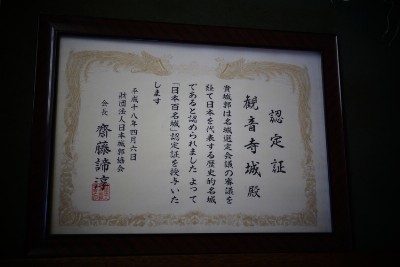 認定証
観音寺城殿
貴城郭は名城選定会議の審議を
経て日本を代表する歴史的名城
であると認められました よって
「日本百名城」認定証を授与いた
します
平成十八年四月六日
財団法人日本城郭協会
会長 齋藤諦淳